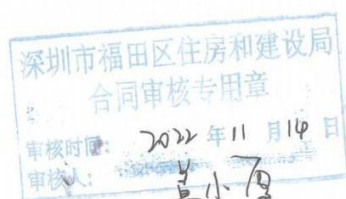 深圳市福田区住房和建设局
合同审核专用章
审核时间: 2022 年 11 月 14 日
审核人: